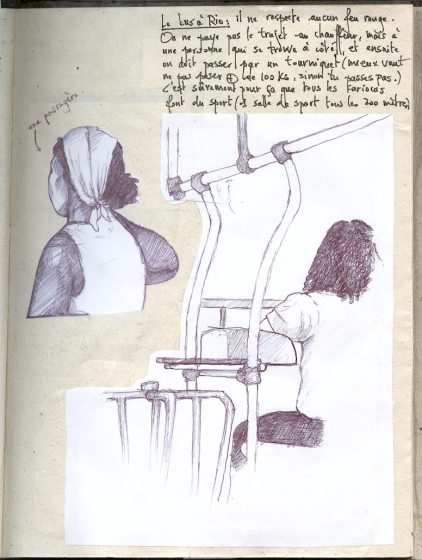 Le bus à Rio: il ne respecte aucun feu rouge.
On ne paye pas le trajet au chauffeur, mais à
une personne qui se trouve à côté, et ensuite
on doit passer par un tourniquet (mieux vaut
ne pas peser ⊕ de 100 ks, sinon tu passes pas.)
c'est sûrement pour ça que tous les Kariocas
font du sport (1 salle de sport tous les 200 mètres)
une passagère